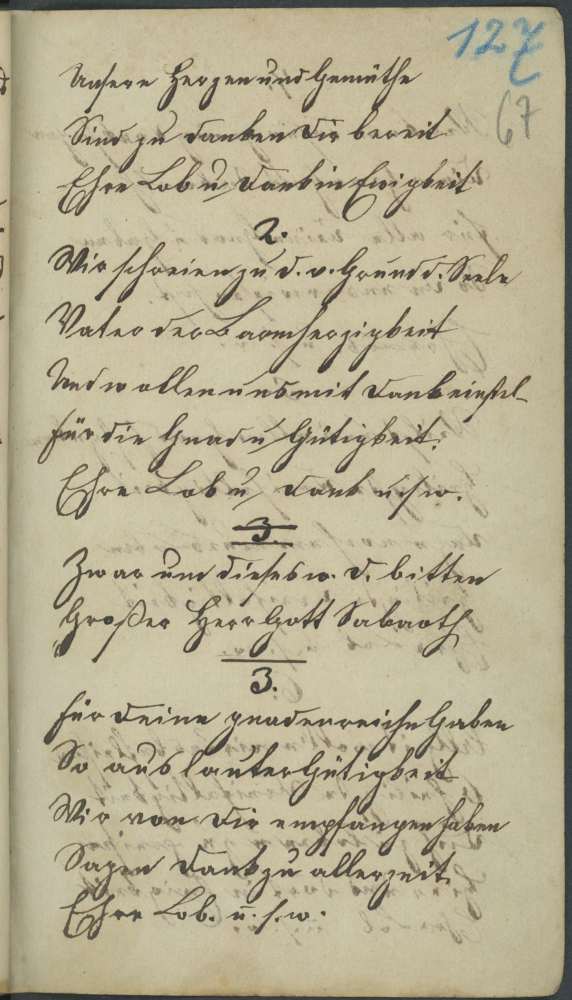 127
67
Unsere Herzen und Gemüthe
Sind zu danken Dir bereit
Ehre Lob u. Dank in Ewigkeit
2.
Wir schreien zu d. v. Grund d. Seele
Vater der Barmherzigkeit
Und wollen uns mit Dank einstel-
Für die Gnad u. Gütigkeit.
Ehre Lob u. Dank u.s.w.
3
Zwar um dieses w. d. bitten
Großer Herr Gott Sabaoth
3.
Für deine gnadenreiche Gaben
So aus lauter Gütigkeit
Wir von Dir empfangen haben
Sagen Dank zu allerzeit.
Ehre Lob. u.s.w.